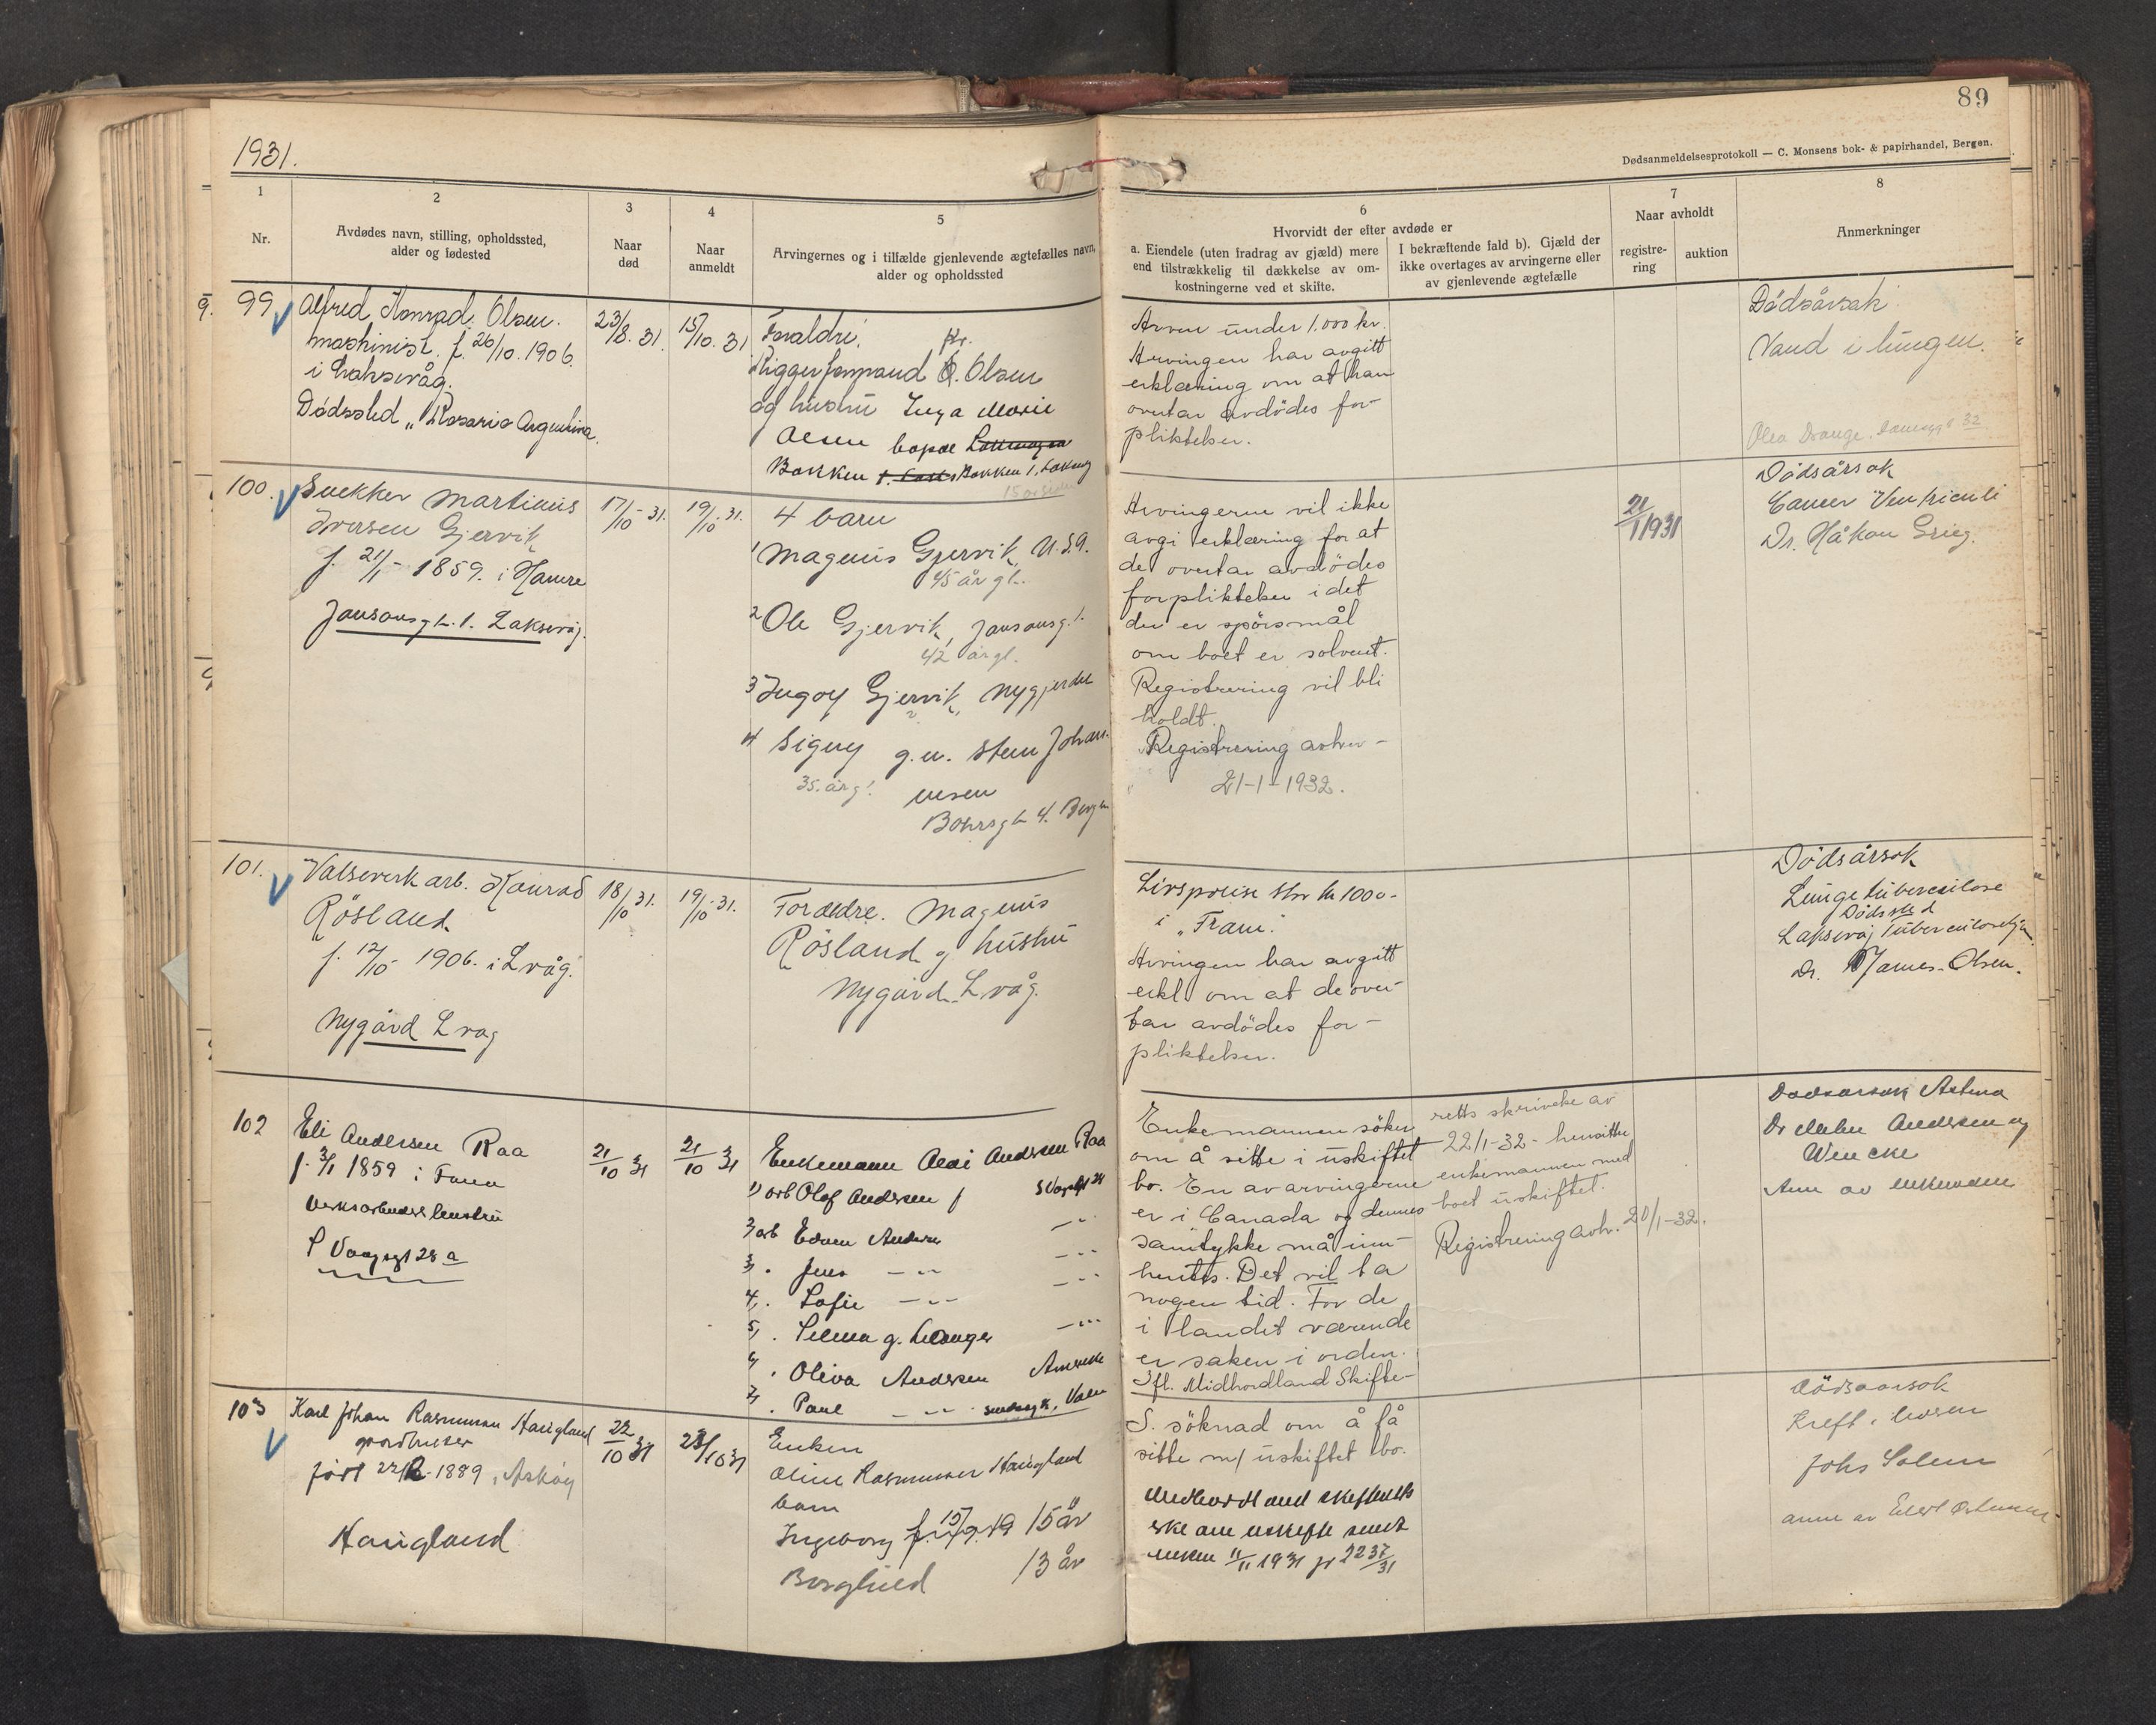 1931.
89
Dødsanmeldelsesprotokoll — C. Monsens bok- & papirhandel, Bergen.
1
Nr.
2
Avdødes navn, stilling, opholdssted,
alder og fødested
3
Naar
død
4
Naar
anmeldt
5
Arvingernes og i tilfælde gjenlevende ægtefælles navn,
alder og opholdssted
6
Hvorvidt der efter avdøde er
a. Eiendele (uten fradrag av gjæld) mere
end tilstrækkelig til dækkelse av om-
kostningerne ved et skifte.
I bekræftende fald b). Gjæld der
ikke overtages av arvingerne eller
av gjenlevende ægtefælle
7
Naar avholdt
registre-
ring
auktion
8
Anmerkninger
99
Alfred Konrad Olsen.
maskinist. f. 26/10. 1906.
i Laksevåg.
Dödssted "Rosario Argentina.
23/8. 31.
15/10. 31
Foreldre.
Riggerformand Kr. Olsen
og hustru Inga Marie
Olsen
Bakken
Arven under 1.000 kr.
Arvingen har avgitt
erklæring om at han
overtar avdödes for-
pliktelser.
Dödsårsak
Vand i lungen.
100.
Snekker Martinus
Iversen Gjervik
f. 21/1- 1859. i Hamre
Jansonsgt. 1. Laksevåg.
17/10- 31.
19/10- 31.
4 barn
1 Magnus Gjervik, U.S.A.
45 år gl.
2 Ole Gjervik, Jansonsg. 1.
42 år gl.
3 Ingolf Gjervik, Nygjerdet
4 Signy g.m. Sten Johan-
nesen
35. år g.
Bohrsgt 4. Bergen
Arvingerne vil ikke
avgi erklæring for at
de overtar avdödes
forpliktelser idet
der er spörsmål
om boet er solvent.
Registrering vil bli
holdt.
Registrering avh.
21-1-1932.
21/1 1931
Dödsårsak
Cancer Ventriculi
Dr. Håkon Grieg.
101.
Valseverkarb. Konrad
Rösland.
f. 12/10 1906. i Lvåg.
Nygård Lvåg
18/10 31.
19/10- 31.
Foreldre. Magnus
Rösland og hustru
Nygård. Lvåg.
Livspolise stor kr 1000-
i "Fram".
Arvingen har avgitt
erkl. om at de over-
tar avdödes for-
pliktelser.
Dödsårsak
Lungetuberculose
Dödssted
Laksevåg Tuberculosehj.
Dr. James-Olsen.
102
Eli Andersen Raa
f. 3/1 1859 i Fana
Verksarbeiders hustru
21/10 31
21/10 31
Enkemann Andersen Raa
1) arb Olaf Andersen
2) arb Edvin Andersen
3, . Jens — „ —
4, . Sofie — „ —
5, . Selma g. Hauger
6, . Oliva Andersen Amerika
7, . Paul — „ —
Enkemannen söker
om å sitte i uskiftet
bo. En av arvingerne
er i Canada og dennes
samtykke må inn-
hentes. Det vil ta
nogen tid. For de
i landet værende
er saken i orden.
Ifl. Midhordland Skifte-
retts skrivelse av
22/1-32- hensitter
enkemannen med
boet uskiftet.
Registrering avh. 20/1-32.
Dödsårsak Astma
Andersen og
Wencke
Anm av enkemannen
103
Karl Johan Rasmussen Haugland
gårdbruker
född 22/12-1889 i Askøy
Haugland
22/10 31
23/10 31
Enken
Oline Rasmussen Haugland
barn
Ingeborg 15 år
Borghild 13 år
S. söknad om å få
sitte m/ uskiftet bo.
Midhordland skifteretts
enken 11/11 1931 jr 2237/31
Dödsaarsak
Kreft i
Johs Solem